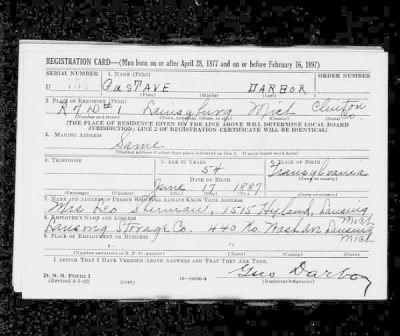 REGISTRATION CARD—(Men born on or after April 28, 1877 and on or before February 16, 1897)
SERIAL NUMBER 1. NAME (Print) ORDER NUMBER
U GUSTAVE DARBOR
(First) (Middle) (Last)
2. PLACE OF RESIDENCE (Print)
R 1 Laingsburg Mich Clinton Co.
(Number and street) (Town, township, village, or city) (County) (State)
[THE PLACE OF RESIDENCE GIVEN ON THE LINE ABOVE WILL DETERMINE LOCAL BOARD
JURISDICTION; LINE 2 OF REGISTRATION CERTIFICATE WILL BE IDENTICAL]
3. MAILING ADDRESS
Same
(Mailing address if other than place indicated on line 2. If same insert word same)
4. TELEPHONE 5. AGE IN YEARS 6. PLACE OF BIRTH
54 Transylvania
DATE OF BIRTH (Town or county)
June 17 1887
(Exchange) (Number) (Mo.) (Day) (Yr.) (State or country)
7. NAME AND ADDRESS OF PERSON WHO WILL ALWAYS KNOW YOUR ADDRESS
Mrs Leo Sherman, 1515 Hyland, Lansing Mich
8. EMPLOYER'S NAME AND ADDRESS
Lansing Storage Co. 440 No. Wash av Lansing Mich
9. PLACE OF EMPLOYMENT OR BUSINESS
" "
(Number and street or R. F. D. number) (Town) (County) (State)
I AFFIRM THAT I HAVE VERIFIED ABOVE ANSWERS AND THAT THEY ARE TRUE.
D. S. S. Form 1
(Revised 4-1-42) (over) Gus Darbor
(Registrant's signature)